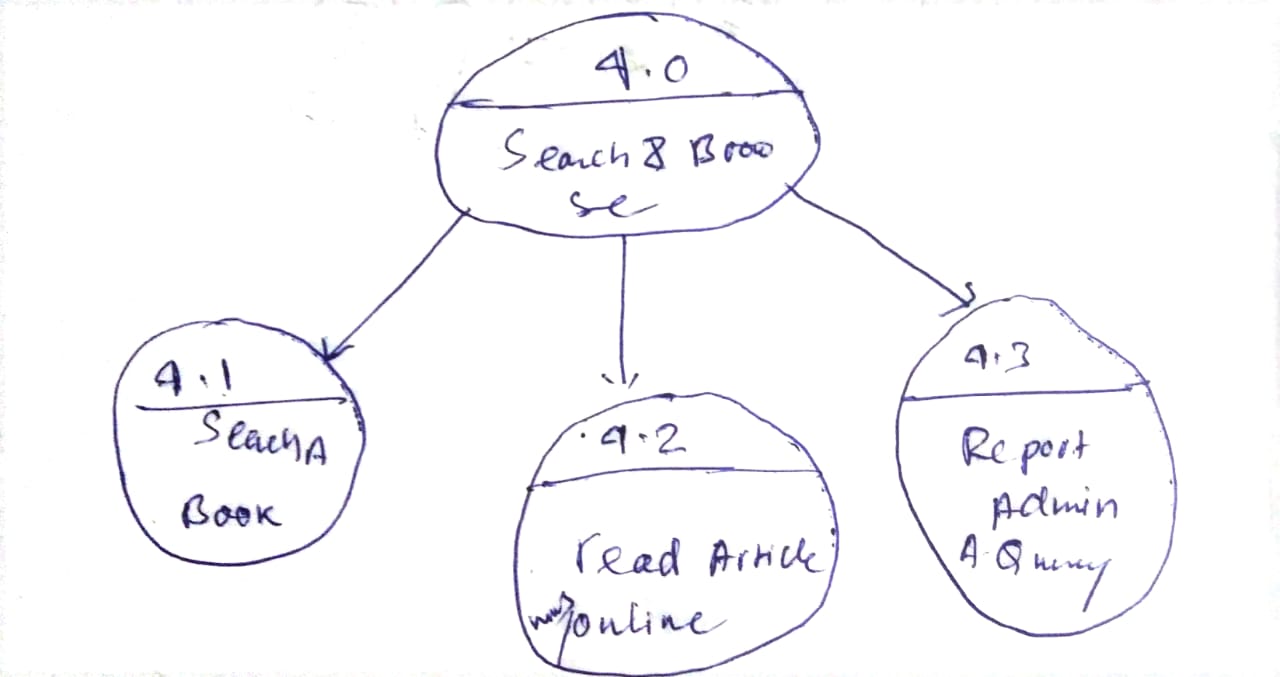 4.0
Search & Brow
se
4.1
Seach A
Book
4.2
read Article
online
4.3
Report
Admin
A Query